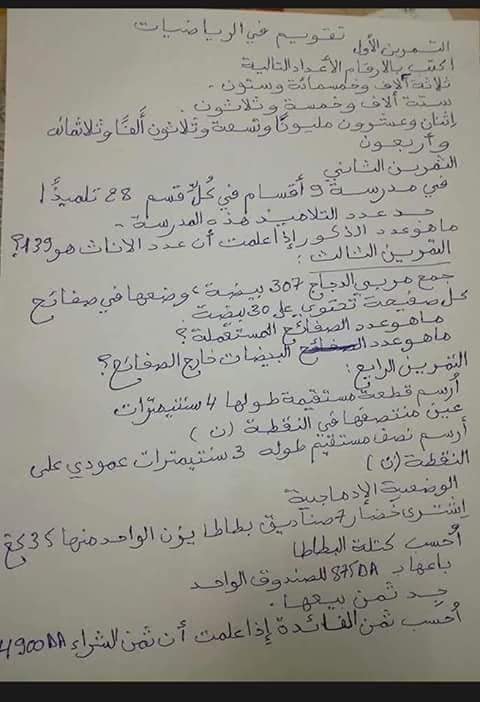 تقويم في الرياضيات
التمرين الأول
اكتب بالأرقام الأعداد التالية
ثلاثة آلاف وخمسمائة وستون.
ستة آلاف وخمسة وثلاثون.
إثنان وعشرون مليونًا وتسعة وثلاثون ألفًا وثلاثمائة
وأربعون
التمرين الثاني
في مدرسة 9 أقسام في كل قسم 28 تلميذًا
جد عدد التلاميذ هذه المدرسة.
ماهو عدد الذكور إذا علمت أن عدد الاناث هو 139؟
التمرين الثالث:
جمع مربي الدجاج 307 بيضة، وضعها في صفائح
كل صفيحة تحتوي على 30 بيضة
ماهو عدد الصفائح المستعملة؟
ماهو عدد البيضات خارج الصفائح؟
التمرين الرابع:
أرسم قطعة مستقيمة طولها 4 سنتيمترات
عين منتصفها في النقطة (ن)
أرسم نصف مستقيم طوله 3 سنتيمترات عمودي على
النقطة (ن)
الوضعية الإدماجية
إشترى خضار 7 صناديق بطاطا يزن الواحد منها 35 كغ
أحسب كتلة البطاطا
باعها بـ 875DA للصندوق الواحد
جد ثمن بيعها.
أحسب ثمن الفائدة إذا علمت أن ثمن الشراء 4900DA